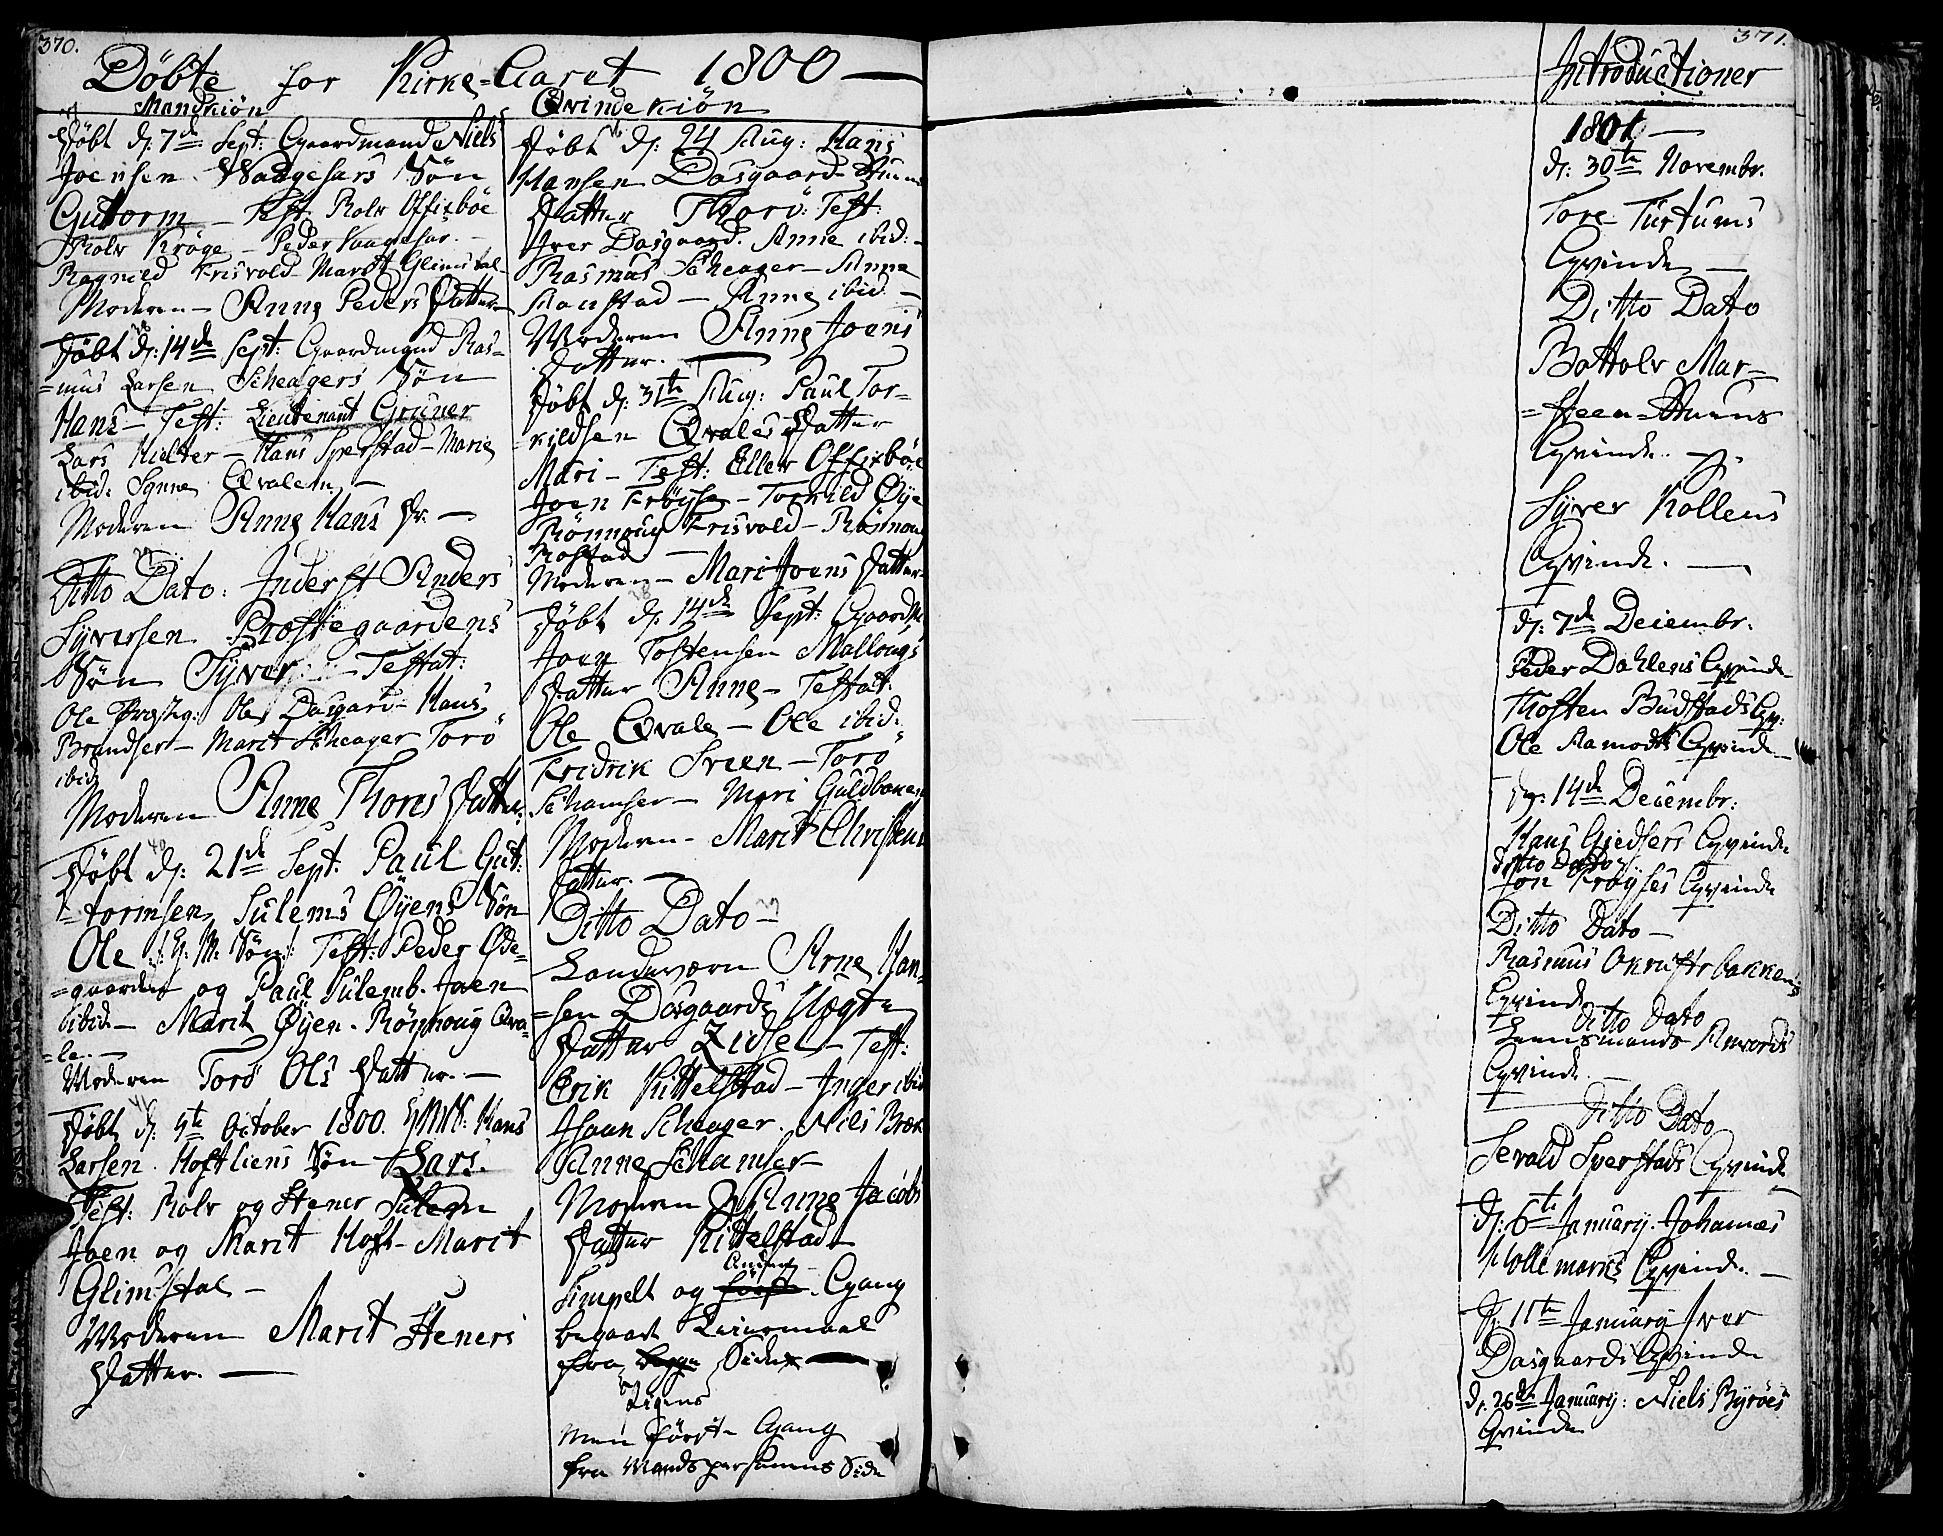 370.
Döbte for Kirke-Aaret 1800
Mandkiön
Döbt d: 7de Sept: Gaardmand Niels
Joensen Waagesars Sön
Guttorm - Test: Rolv Offixböe
Rolv Kröge - Peder Vaagesar -
Ragnild Frisvold - Marit Glimsdal
Moderen - Anne Peders Datter
Döbt d: 14de Sept: Gaardmand Ras-
=mus Larsen Scheagers Sön
Hans - Test: Lieutenant Grüner
Lars Hielter - Hans Sperstad - Marie
ibid: Synne Qvalem -
Moderen Anne Hans Dr. -
Ditto Dato: Inderst Anders
Syversen Prostegaardens
Sön Syver - Testat:
Ole Prosteg: Ole Dasgard - Hans
Brandser - Marit Scheager Torö
ibid
Moderen Anne Thores Datter
40
Döbt d: 21de Sept. Paul Gut:
=tormsen Sulems Øyens Sön
Ole Sön: Test: Peder Øde-
=gaarden og Paul Sulemb. Joen
ibid - Marit Øyen - Rönnoug Qva-
=le. -
Moderen Torö Ols Datter. -
41
Döbt d: 5te October 1800. Hans
Larsen Hoftliens Sön Lars.
Test: Rolv og Stener Sulem
Joen og Marit Hoft - Marit
Glimsdal -
Moderen Marit Steners
Datter. -
Qvindekiön
Döbt d: 24 Aug: Hans
Hansen Dasgaard
Datter Thorö: Test:
Iver Dasgaard. Anne ibid: -
Rasmus Scheager - Anne
Anne ibid -
Moderen Anne Joens
Datter. -
Döbt d: 31te Aug: Paul Tor-
=kildsen Qvales Datter
Mari - Test: Ellev Offixböe
Joen Fröyse - Torkild Øye
Rönnoug Frisvold - Rönnoug
Rostad -
Moderen - Mari Joens Datter
28
Döbt d: 14de Sept: Gaardm
Joen Tostensen Mallougs
Datter Anne - Testat:
Ole Qvale - Ole ibid:
Fridrik Sveen - Torö
Schamser - Mari Guldbakken
Moderen - Marit Christens
Datter. -
Ditto Dato -
Landeværn Arne Han-
=sen Dasgaards Uægte
Datter Zidsel - Test:
Erik Kittelstad - Inger ibid
Johan Scheager. Niels Bræk
Anne Schamser -
Moderen Anne Jacobs
Datter Kittelstad
Anden
Simpelt og först Gang
begaaet Leiermaal
fra begge Sider -
Pigens
men förste Gang
fra Mandspersonens Side
371.
Introductioner
1801 -
d: 30te Novembr.
Tore Turtums
Qvinde -
Ditto Dato
Bottolv Mar-
=steen
Qvinde. -
Syver Kollens
Qvinde. -
d: 7de Decembr:
Peder Dahlens Qvinde
Thosten Budstads Qv:
Ole Aamodts Qvinde -
d: 14de Decembr:
Hans Giedsers Qvinde
Ditto Dato
Jon Fröyses Qvinde
Ditto Dato -
Rasmus Okrustrbakkens
Qvinde
Ditto Dato
Lensmands Aavords
Qvinde -
Ditto Dato
Sevald Sperstads Qvinde
d: 6te January. Johannes
Wollemarks Qvinde. -
d: 11te January Iver
Dasgaards Qvinde
d: 26de January: Niels Byröes
Qvinde